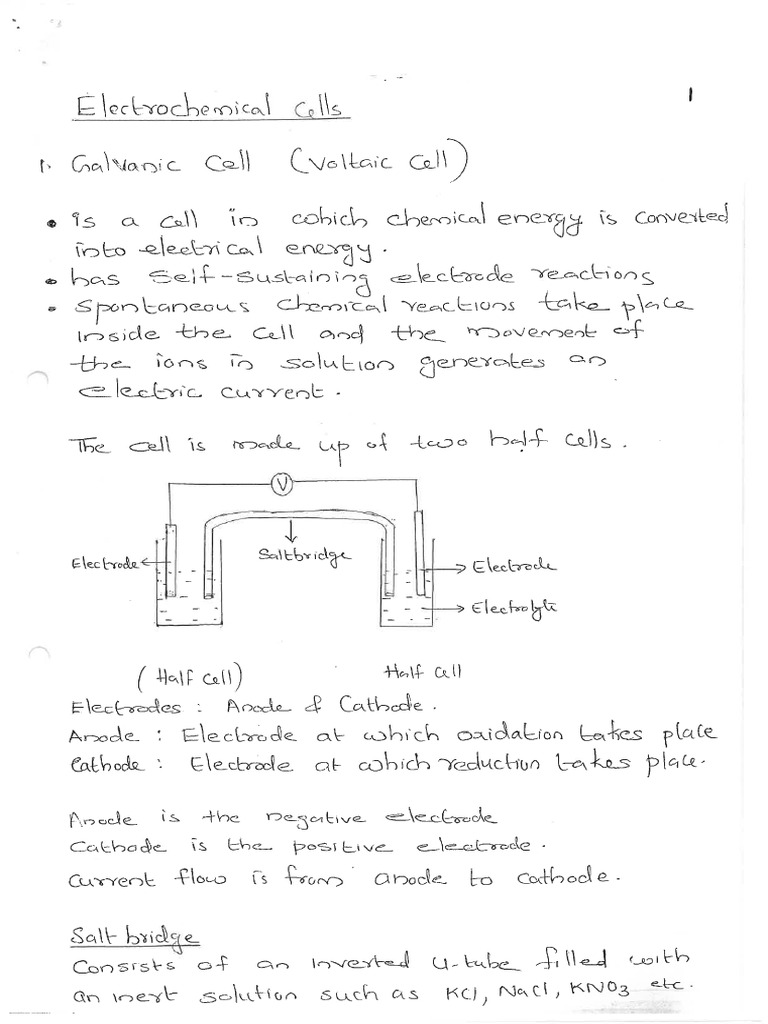 1
Electrochemical Cells
1. Galvanic Cell (Voltaic Cell)
• is a cell in which chemical energy is converted
into electrical energy.
• has self-sustaining electrode reactions
• Spontaneous chemical reactions take place
inside the cell and the movement of
the ions in solution generates an
electric current.
The cell is made up of two half cells.
V
Saltbridge
Electrode
Electrode
Electrolyte
(Half cell)
Half cell
Electrodes : Anode & Cathode.
Anode : Electrode at which oxidation takes place
Cathode : Electrode at which reduction takes place.
Anode is the negative electrode
Cathode is the positive electrode.
Current flow is from anode to cathode.
Salt bridge
Consists of an inverted U-tube filled with
an inert solution such as KCl, NaCl, KNO3 etc.